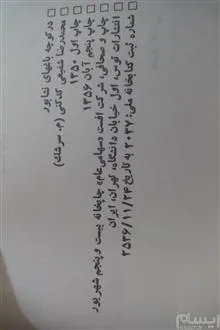 □ در کوچه باغهای نشابور
□ محمدرضا شفیعی کدکنی (م. سرشک)
□ چاپ اول ۱۳۵۰
□ چاپ پنجم آبان ۱۳۵۶
□ چاپ و صحافی، شرکت افست «سهامی عام» چاپخانه بیست و پنجم شهریور
□ انتشارات توس، اول خیابان دانشگاه، تهران، ایران
□ شماره ثبت کتابخانه ملی: ۲۰۳۷ به تاریخ ۲۵۳۶/۱۱/۲۴
ایسام